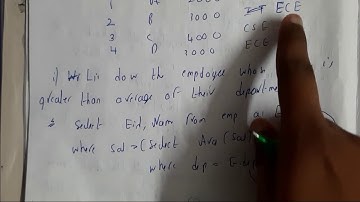 1 2000 ECE
2 B 3000
3 C 4000 CSE
4 D 2000 ECE
i) Lis dow the employee whos is
greater than average of their departme
select Eid, Nam from emp as E
where sal > (Select Avg (Sal)
where dep = E.dep